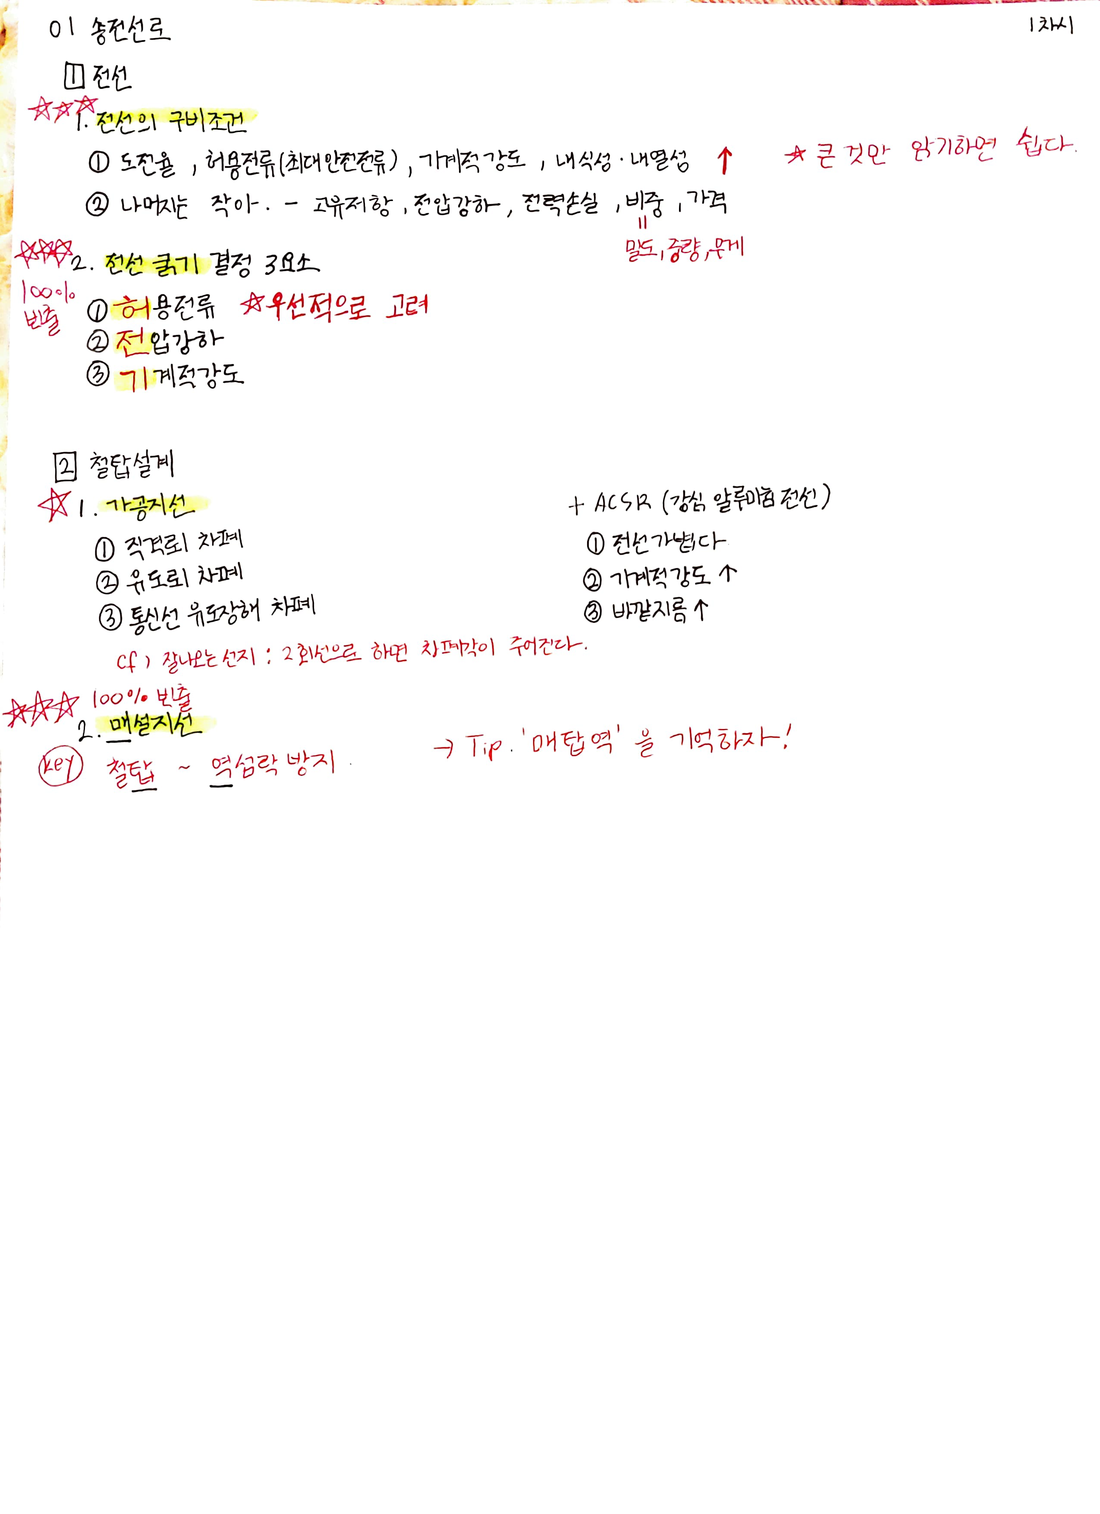 01 송전선로
1차시
1 전선
☆☆☆
1. 전선의 구비조건
① 도전율, 허용전류(최대안전전류), 기계적강도, 내식성·내열성 ↑
☆ 큰 것만 암기하면 쉽다.
② 나머지는 작아. - 고유저항, 전압강하, 전력손실, 비중, 가격
=
밀도, 중량, 무게
☆☆☆ 2. 전선 굵기 결정 3요소
100% 빈출
① 허용전류 ☆우선적으로 고려
② 전압강하
③ 기계적강도
2 철탑설계
☆ 1. 가공지선
① 직격뢰 차폐
② 유도뢰 차폐
③ 통신선 유도장해 차폐
+ ACSR (강심 알루미늄 전선)
① 전선가볍다
② 기계적강도 ↑
③ 바깥지름 ↑
cf) 잘나오는선지 : 2회선으로 하면 차폐각이 주어진다.
☆☆☆ 100% 빈출
2. 매설지선
key 철탑 ~ 역섬락 방지.
→ Tip. '매탑역' 을 기억하자!